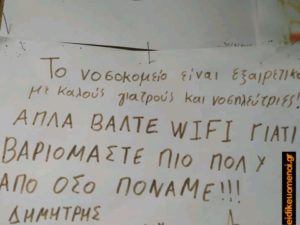 Το νοσοκομείο είναι εξαιρετικό
με καλούς γιατρούς και νοσηλεύτριες!
ΑΠΛΑ ΒΑΛΤΕ WIFI ΓΙΑΤΙ
ΒΑΡΙΟΜΑΣΤΕ ΠΙΟ ΠΟΛΥ
ΑΠΟ ΟΣΟ ΠΟΝΑΜΕ!!!
ΔΗΜΗΤΡΗΣ
eidikeuomenoi.gr